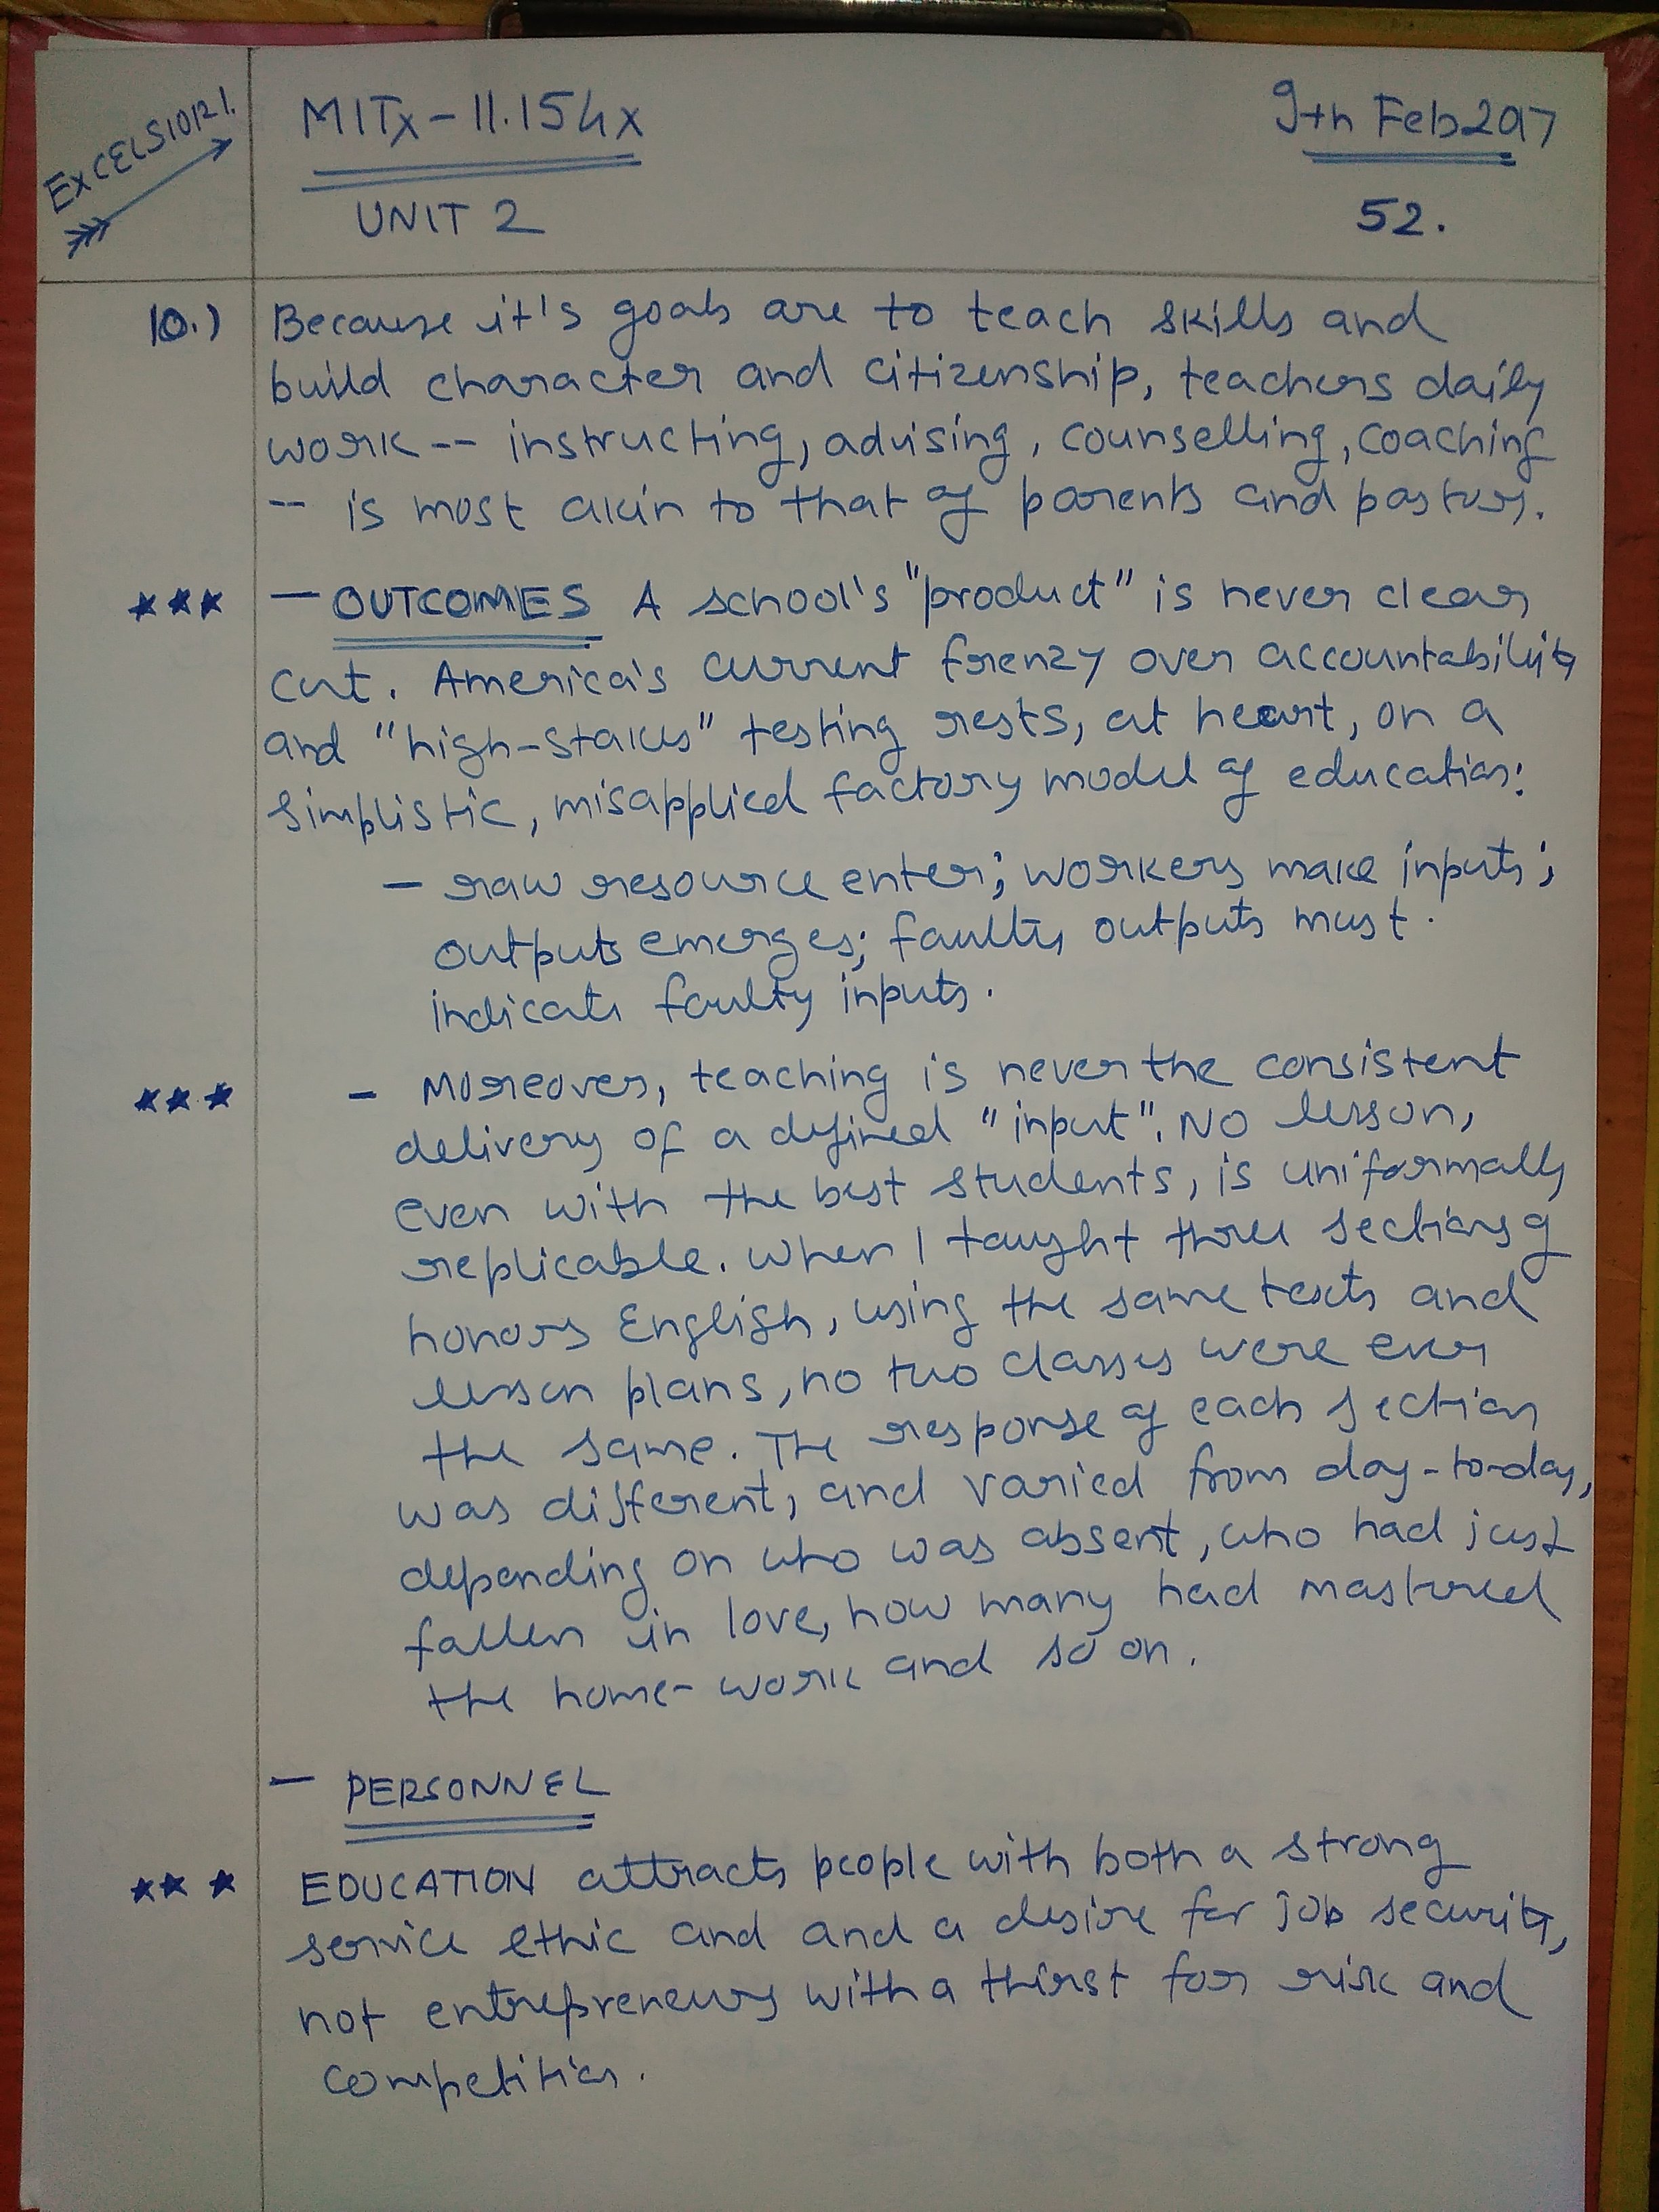 EXCELSIOR!
MITx-11.154x
9th Feb 2017
UNIT 2
52.
10.) Because it's goals are to teach skills and
build character and citizenship, teachers daily
work -- instructing, advising, counselling, coaching
-- is most akin to that of parents and pastors.
*** - OUTCOMES A school's "product" is never clear
cut. America's current frenzy over accountability
and "high-stakes" testing rests, at heart, on a
simplistic, misapplied factory model of education:
- raw resource enter; workers make inputs;
outputs emerges; faulty outputs must
indicate faulty inputs.
*** - Moreover, teaching is never the consistent
delivery of a defined "input". No lesson,
even with the best students, is uniformally
replicable. When I taught three sections of
honors English, using the same texts and
lesson plans, no two classes were ever
the same. The response of each section
was different, and varied from day-to-day,
depending on who was absent, who had just
fallen in love, how many had mastered
the home-work and so on.
- PERSONNEL
*** EDUCATION attracts people with both a strong
service ethic and and a desire for job security,
not entrepreneurs with a thirst for risk and
competition.